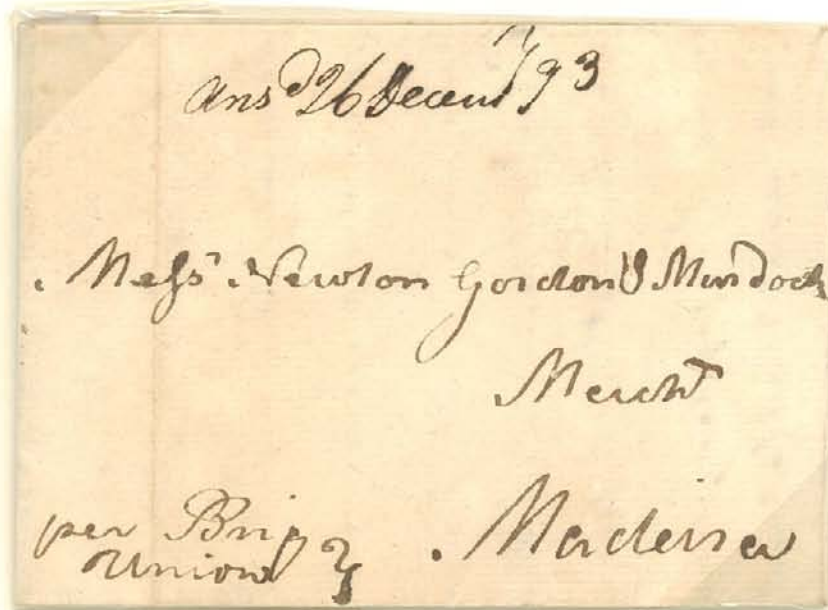 Ansd 26 Decemr 93
Messrs Newton Gordon & Murdoch
Mercht
Madeira
per Brig
Union